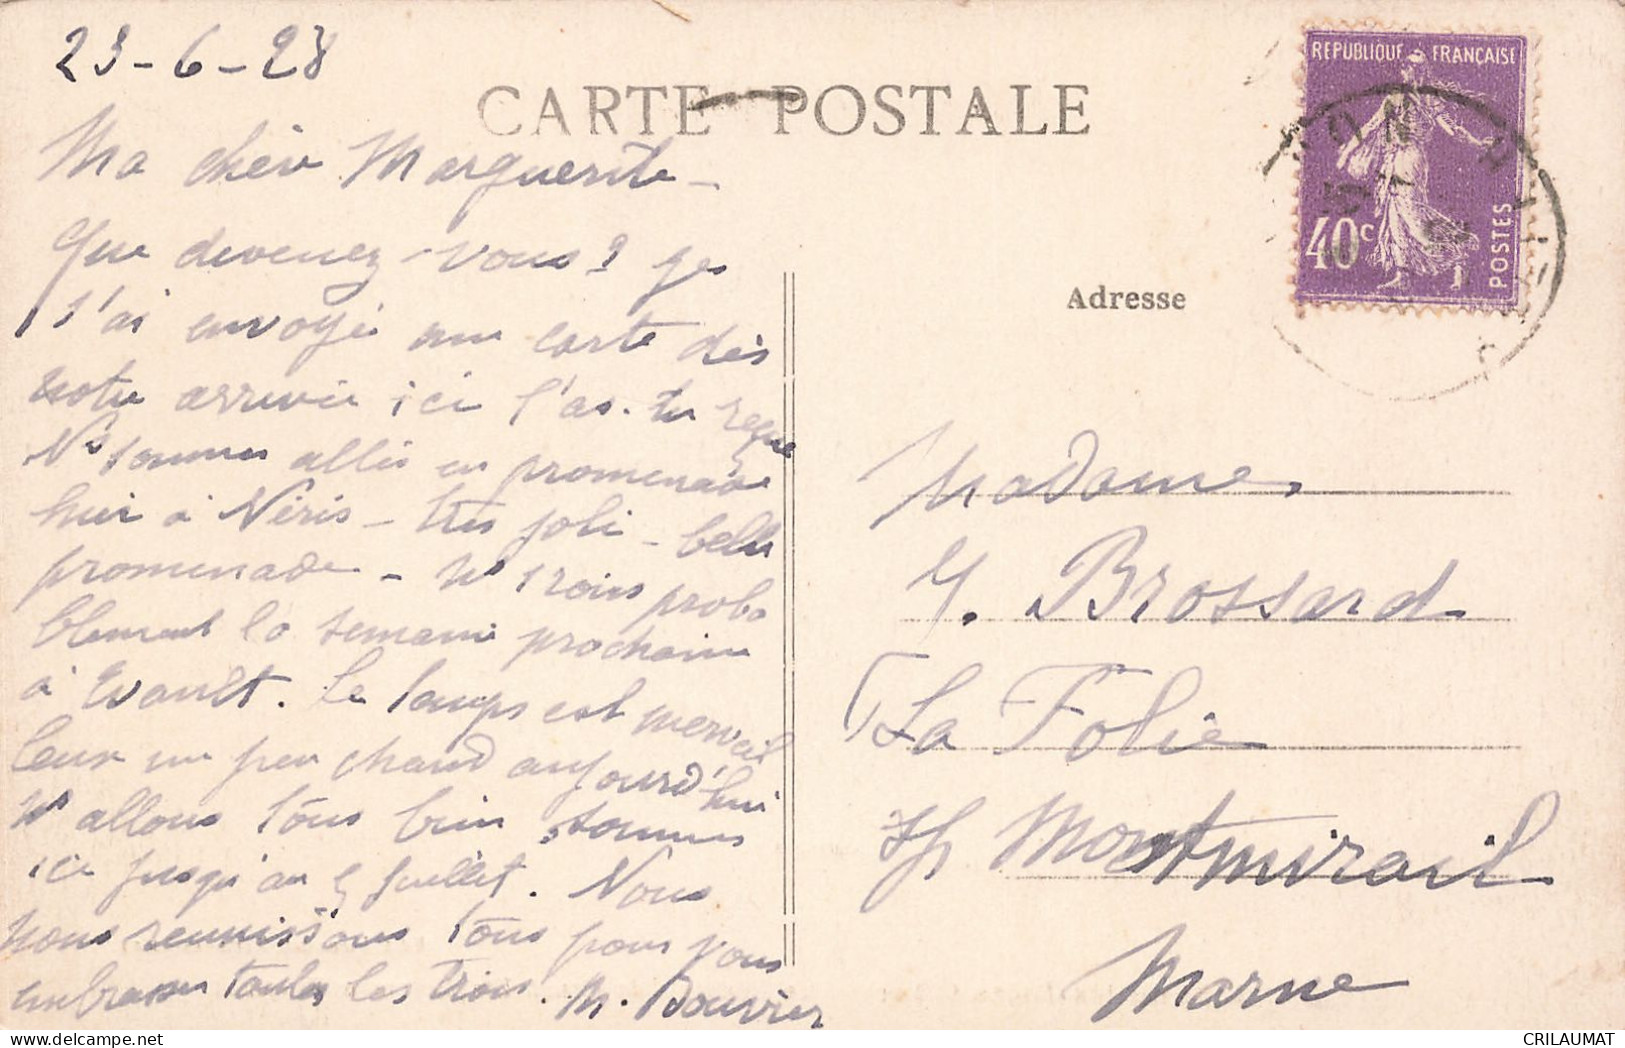 23-6-28
CARTE POSTALE
REPUBLIQUE FRANÇAISE
40c
POSTES
Ma chère Marguerite -
Que devenez-vous ? je
t'ai envoyé une carte dès
notre arrivée ici l'as-tu reçue
Ns sommes allés en promenade
hier à Néris - très joli - belle
promenade - Ns irons proba
blement la semaine prochaine
à Evault. Le temps est merveil
leux un peu chaud aujourd'hui
Ns allons tous bien sommes
ici jusqu'au 5 Juillet. Nous
nous réunissons tous pour vous
embrasser toutes les trois. M. Bouvier
Adresse
Madame
Y. Brossard
La Folie
Montmirail
Marne
CRILAUMAT